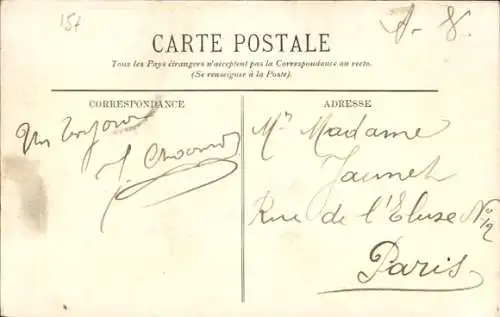 157
A. V.
CARTE POSTALE
Tous les Pays étrangers n'acceptent pas la Correspondance au recto.
(Se renseigner à la Poste).
CORRESPONDANCE
Un bonjour
ADRESSE
Madame
Jaunet
Rue de l'Ecluse No 12
Paris